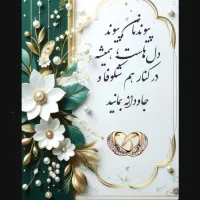 پیوندتان پیوند
دل هاست، همیشه
در کنار هم شکوفا و
جاودانه بمانید